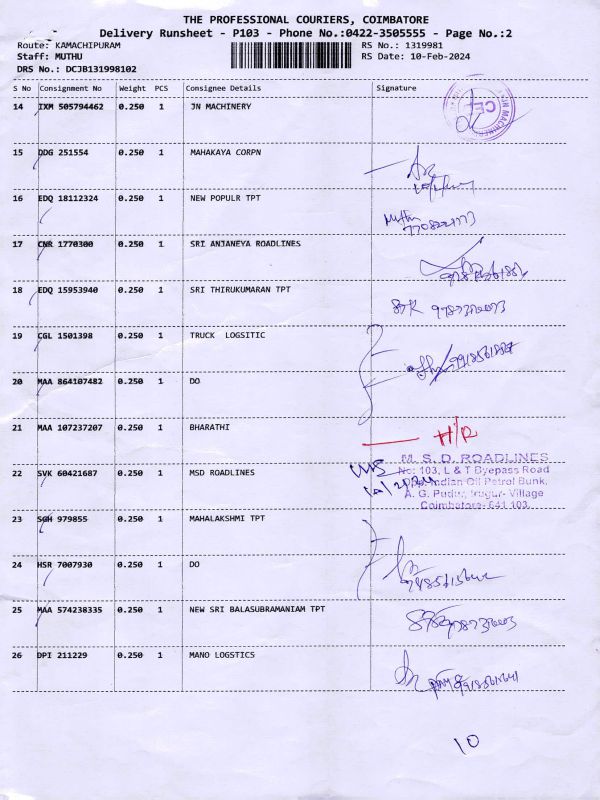 THE PROFESSIONAL COURIERS, COIMBATORE
Delivery Runsheet - P103 - Phone No.:0422-3505555 - Page No.:2
Route: KAMACHIPURAM RS No.: 1319981
Staff: MUTHU RS Date: 10-Feb-2024
DRS No.: DCJB131998102
S No Consignment No Weight PCS Consignee Details Signature
14 IXM 505794462 0.250 1 JN MACHINERY
15 DDG 251554 0.250 1 MAHAKAYA CORPN
16 EDQ 18112324 0.250 1 NEW POPULR TPT
Muthu
17 CNR 1770300 0.250 1 SRI ANJANEYA ROADLINES
18 EDQ 15953940 0.250 1 SRI THIRUKUMARAN TPT
STK
19 CGL 1501398 0.250 1 TRUCK LOGSITIC
20 MAA 864107482 0.250 1 DO
21 MAA 107237207 0.250 1 BHARATHI
H/R
22 SVK 60421687 0.250 1 MSD ROADLINES
M. S. D. ROADLINES
No: 103, L & T Byepass Road
Indian Oil Petrol Bunk,
A. G. Pudur, Irugur- Village
Coimbatore- 641 103.
23 SGH 979855 0.250 1 MAHALAKSHMI TPT
24 HSR 7007930 0.250 1 DO
25 MAA 574238335 0.250 1 NEW SRI BALASUBRAMANIAM TPT
26 DPI 211229 0.250 1 MANO LOGSTICS
10